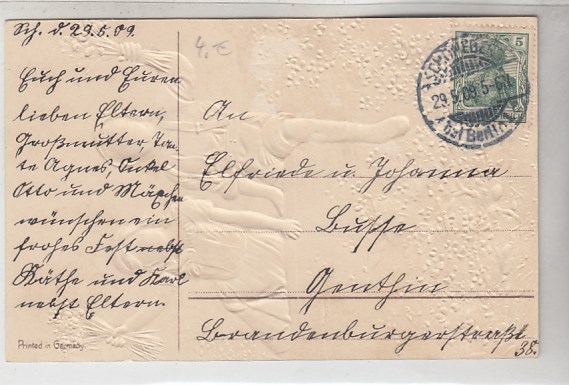 Sch. d. 29.5.09.
4,-€
Euch und Euren
lieben Eltern,
Großmutter, Tan-
te Agnes, Onkel
Otto und Mäxchen
wünschen ein
frohes Fest nebst
Käthe und Karl
nebst Eltern.
Printed in Germany.
5
29.5.09. 5-6N.
bei Berlin
An
Elfriede u. Johanna
Busse
Genthin
Brandenburgerstraße
38.